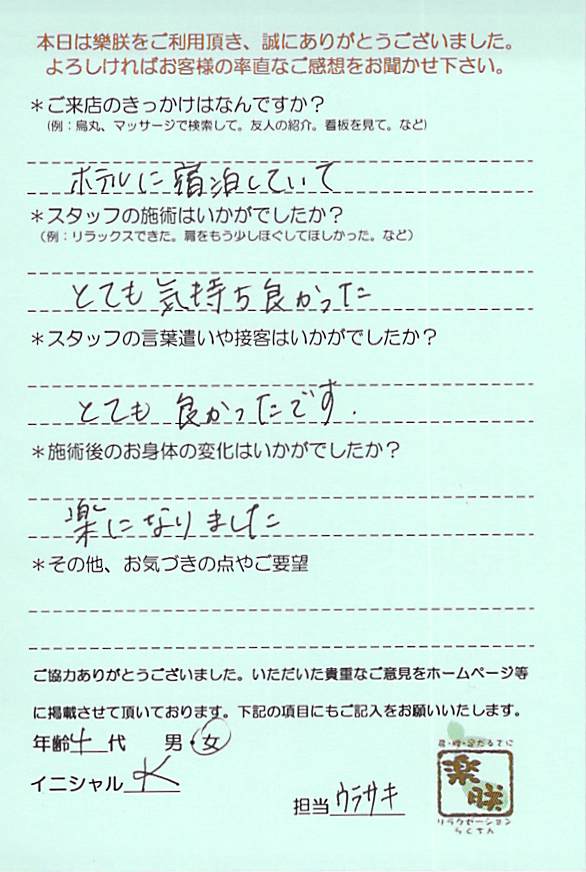 本日は樂朕をご利用頂き、誠にありがとうございました。
よろしければお客様の率直なご感想をお聞かせ下さい。
＊ご来店のきっかけはなんですか？
（例：烏丸、マッサージで検索して。友人の紹介。看板を見て。など）
ホテルに宿泊していて
＊スタッフの施術はいかがでしたか？
（例：リラックスできた。肩をもう少しほぐしてほしかった。など）
とても気持ち良かった
＊スタッフの言葉遣いや接客はいかがでしたか？
とても良かったです.
＊施術後のお身体の変化はいかがでしたか？
楽になりました
＊その他、お気づきの点やご要望
ご協力ありがとうございました。いただいた貴重なご意見をホームページ等
に掲載させて頂いております。下記の項目にもご記入をお願いいたします。
年齢 代 男・女
イニシャル K
担当 ウラサキ
樂朕
リラクゼーション
らくちん